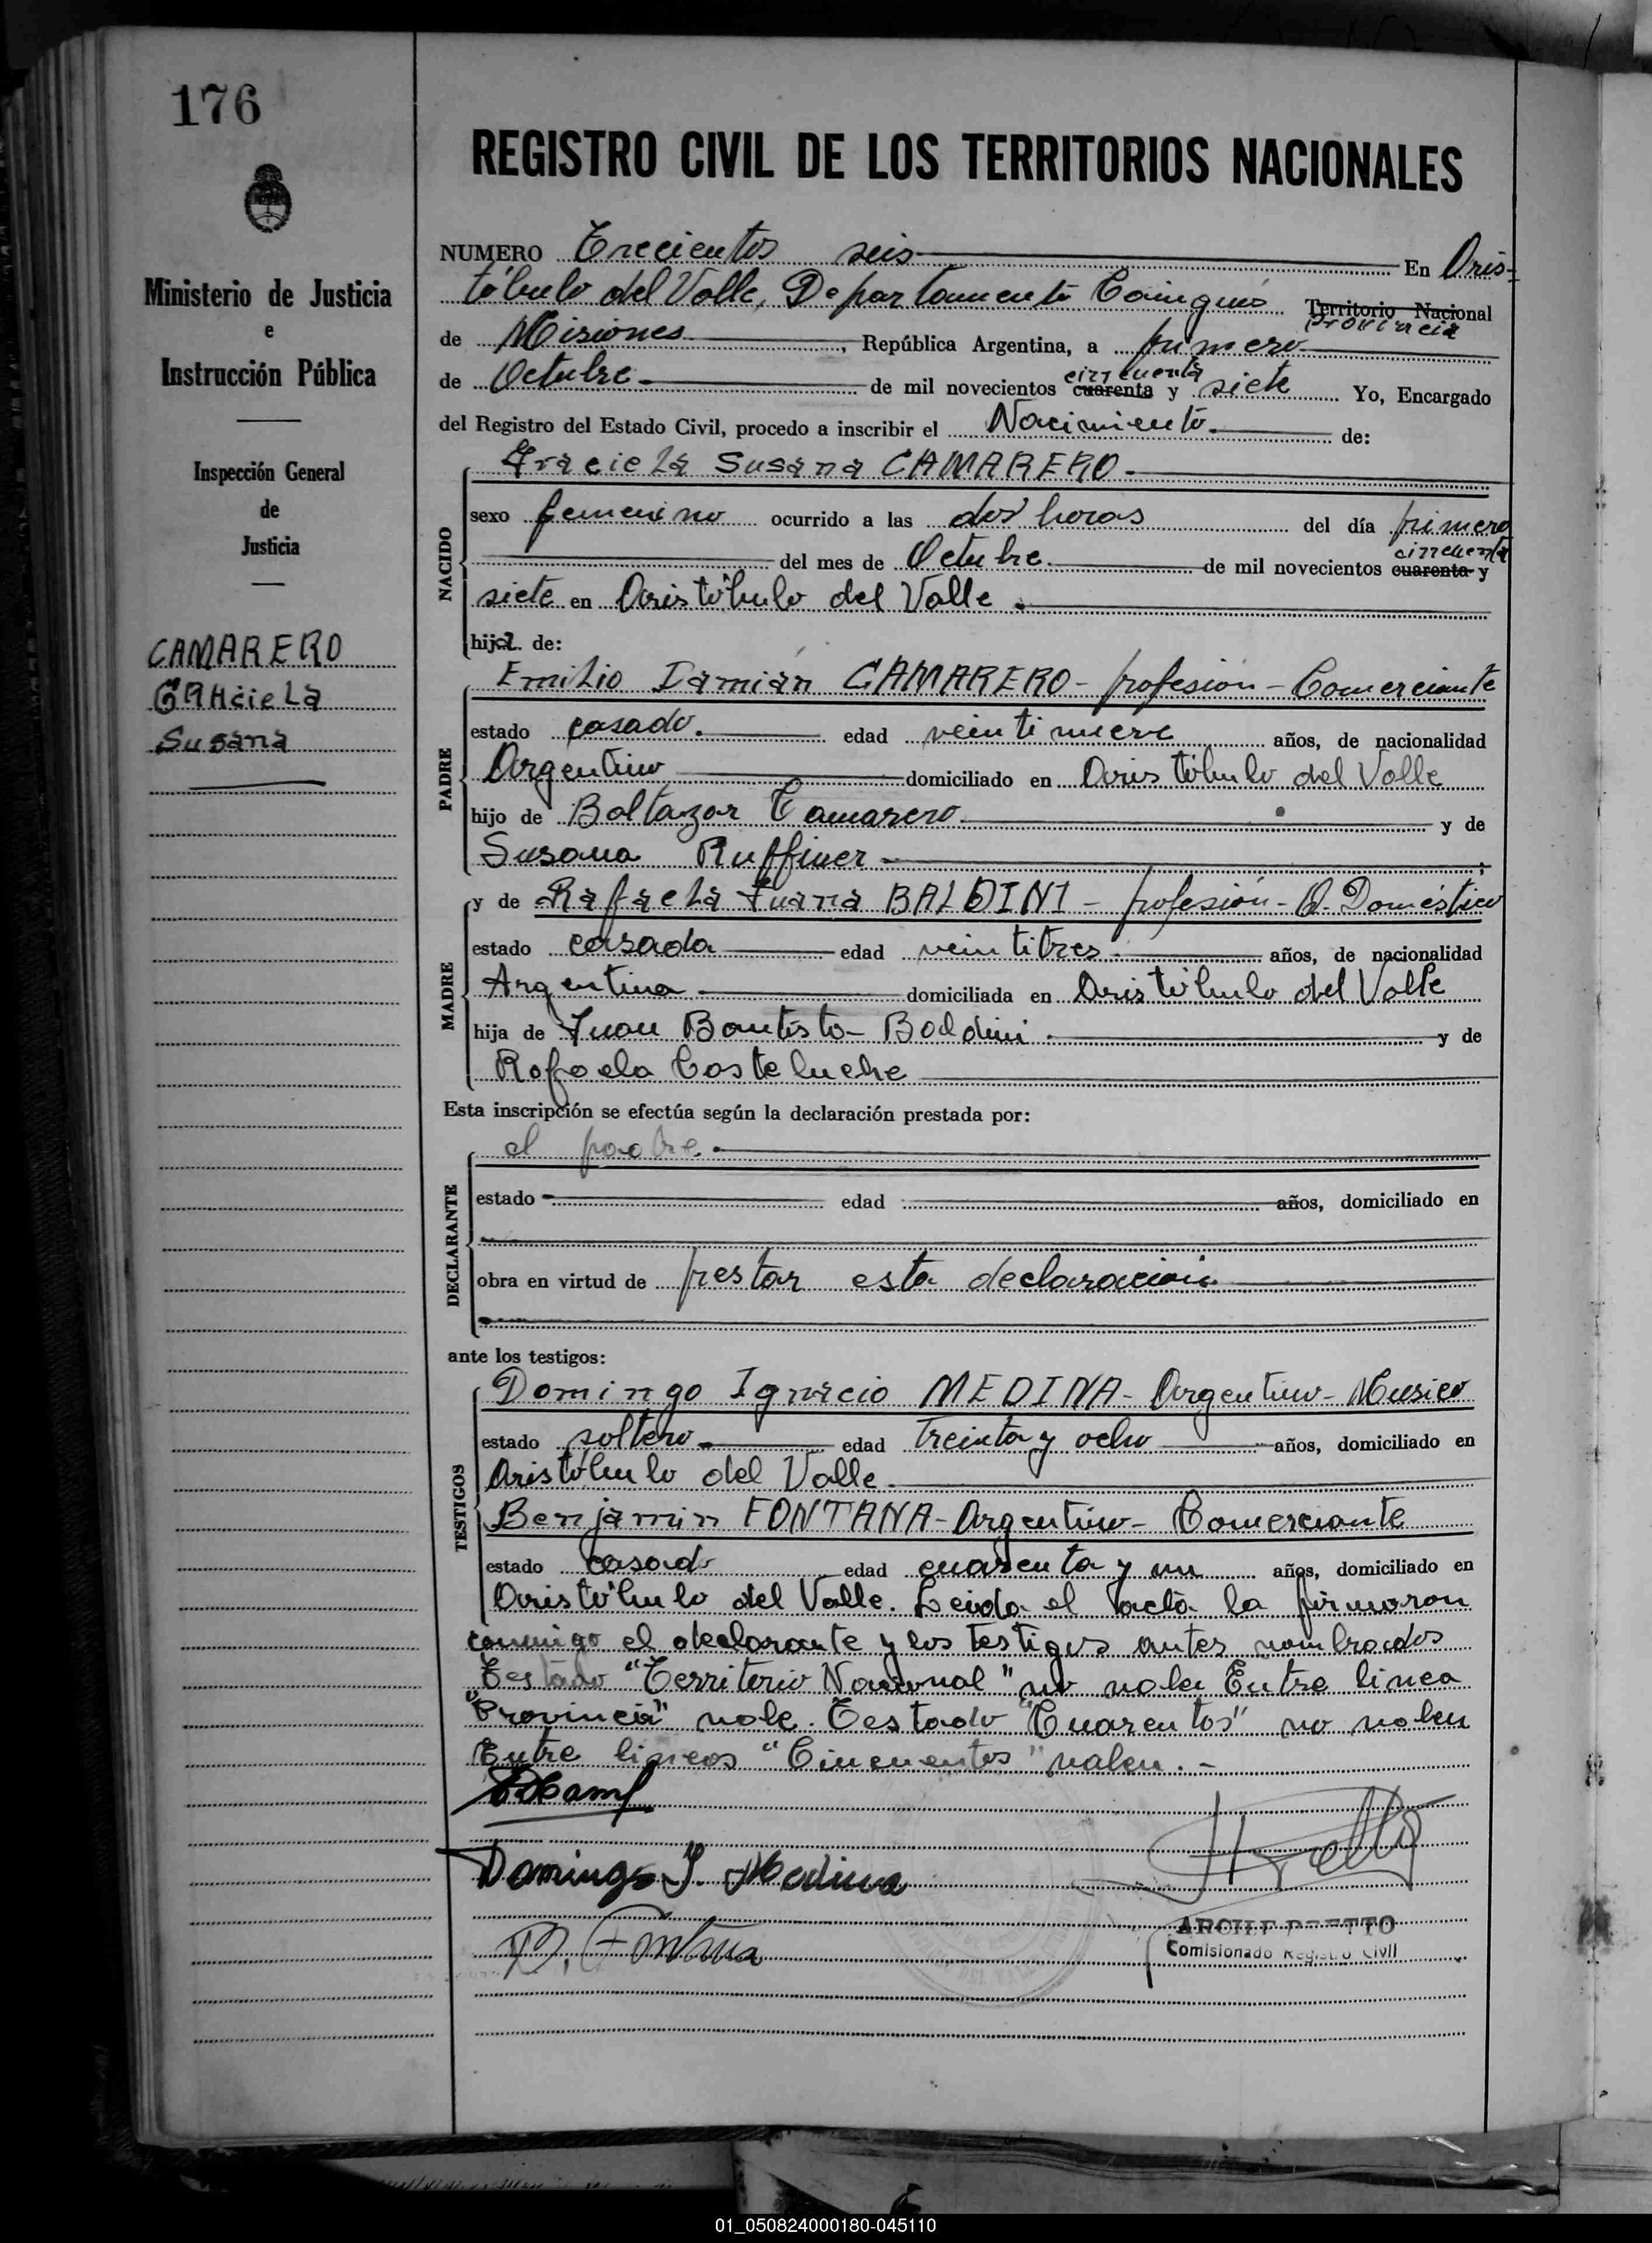 176
REGISTRO CIVIL DE LOS TERRITORIOS NACIONALES
Ministerio de Justicia
e
Instrucción Pública
Inspección General
de
Justicia
CAMARERO
GRAcieLa
Susana
NUMERO Trecientos seis En Aris-
tóbulo del Valle, Departamento Cainguás Territorio Nacional
Provincia
de Misiones, República Argentina, a primero
de Octubre de mil novecientos cuarenta cincuenta y siete Yo, Encargado
del Registro del Estado Civil, procedo a inscribir el Nacimiento. de:
NACIDO
Graciela Susana CAMARERO
sexo femenino ocurrido a las dos horas del día primero
del mes de Octubre. de mil novecientos cuarenta cincuenta y
siete en Aristóbulo del Valle.
hija. de:
PADRE
Emilio Damián CAMARERO - profesión - Comerciante
estado casado. edad veintinueve años, de nacionalidad
Argentino domiciliado en Aristóbulo del Valle
hijo de Baltazar Camarero y de
Susana Ruffiner
MADRE
y de Rafaela Juana BALDINI - profesión - Q. Doméstico
estado casada edad veintitres años, de nacionalidad
Argentina domiciliada en Aristóbulo del Valle
hija de Juan Bautista Baldini y de
Rafaela Casteluche
Esta inscripción se efectúa según la declaración prestada por:
DECLARANTE
el padre.
estado edad años, domiciliado en
obra en virtud de prestar esta declaración
ante los testigos:
TESTIGOS
Domingo Ignacio MEDINA - Argentino - Musico
estado soltero edad treinta y ocho años, domiciliado en
Aristóbulo del Valle.
Benjamin FONTANA - Argentino - Comerciante
estado casado edad cuarenta y un años, domiciliado en
Aristóbulo del Valle. Leida el acta la firmaron
conmigo el declarante y los testigos antes nombrados
Testado "Territorio Nacional" no vale Entre linea
"Provincia" vale. Testado "Cuarentas" no valen
Entre lineas "Cincuentas" valen. -
Domingo I. Medina
B. Fontana
Comisionado Registro Civil
01_050824000180-045110